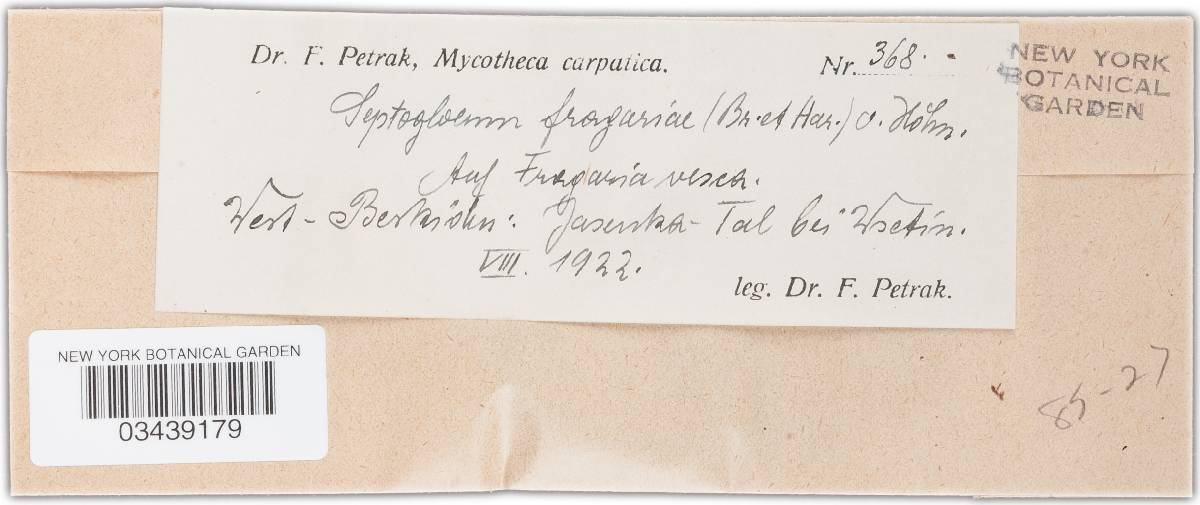 Dr. F. Petrak, Mycotheca carpatica.
Nr. 368.
NEW YORK
BOTANICAL
GARDEN
Septogloeum fragariae (Br. et Har.) v. Höhn.
Auf Fragaria vesca.
West-Beskiden: Jasenka-Tal bei Wsetin.
VIII. 1922.
leg. Dr. F. Petrak.
NEW YORK BOTANICAL GARDEN
03439179
85-27